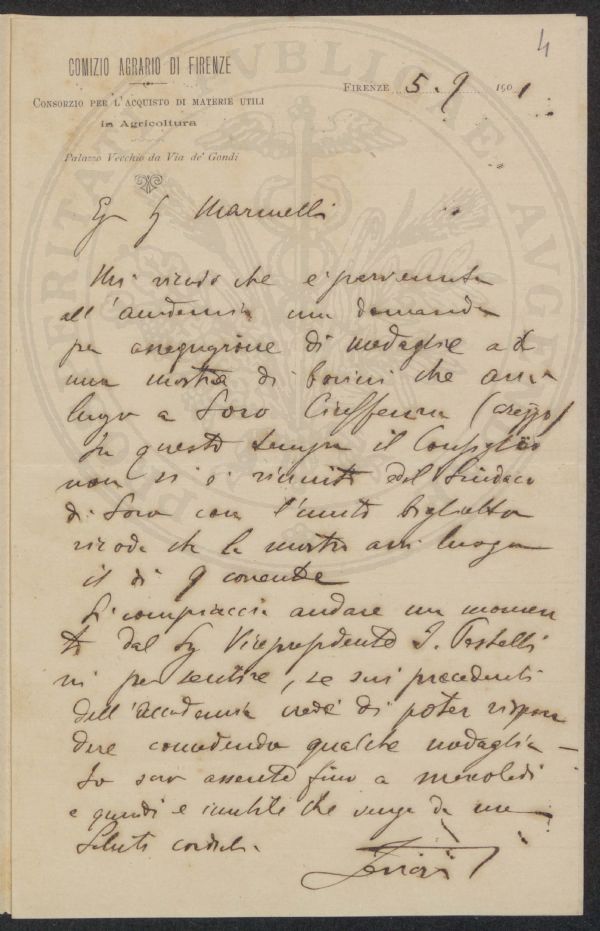 4
COMIZIO AGRARIO DI FIRENZE
CONSORZIO PER L'ACQUISTO DI MATERIE UTILI
in Agricoltura
Palazzo Vecchio da Via de' Gondi
FIRENZE 5.9 1901
Eg Sg Marinelli
Mi ricordo che è pervenuta
all'accademia una domanda
per assegnazione di medaglie ad
una mostra di bovini che avrà
luogo a Loro Ciuffenna (Arezzo)
In questo tempo il Consiglio
non si è riunito ed il Sindaco
di Loro con l'unito biglietto
ricorda che la mostra avrà luogo
il dì 9 corrente
Si compiaccia andare un momen
to dal Sg Vicepresidente I. Pestelli
ni per sentire, se sui precedenti
dell'accademia crede di poter rispon
dere concedendo qualche medaglia –
Io sarò assente fino a mercoledì
e quindi è inutile che venga da me
Saluti cordiali.